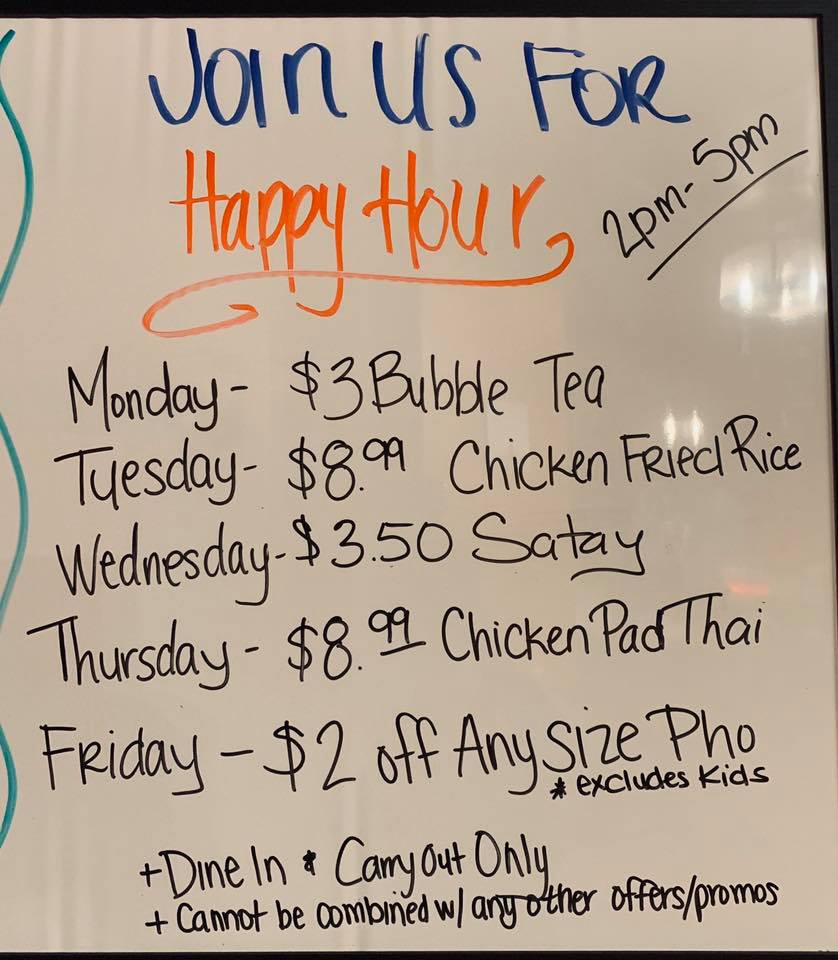 Join Us For
Happy Hour
2pm-5pm
Monday - $3 Bubble Tea
Tuesday - $8.99 Chicken Fried Rice
Wednesday - $3.50 Satay
Thursday - $8.99 Chicken Pad Thai
Friday - $2 off Any Size Pho
* excludes Kids
+ Dine In & Carry Out Only
+ Cannot be combined w/ any other offers/promos